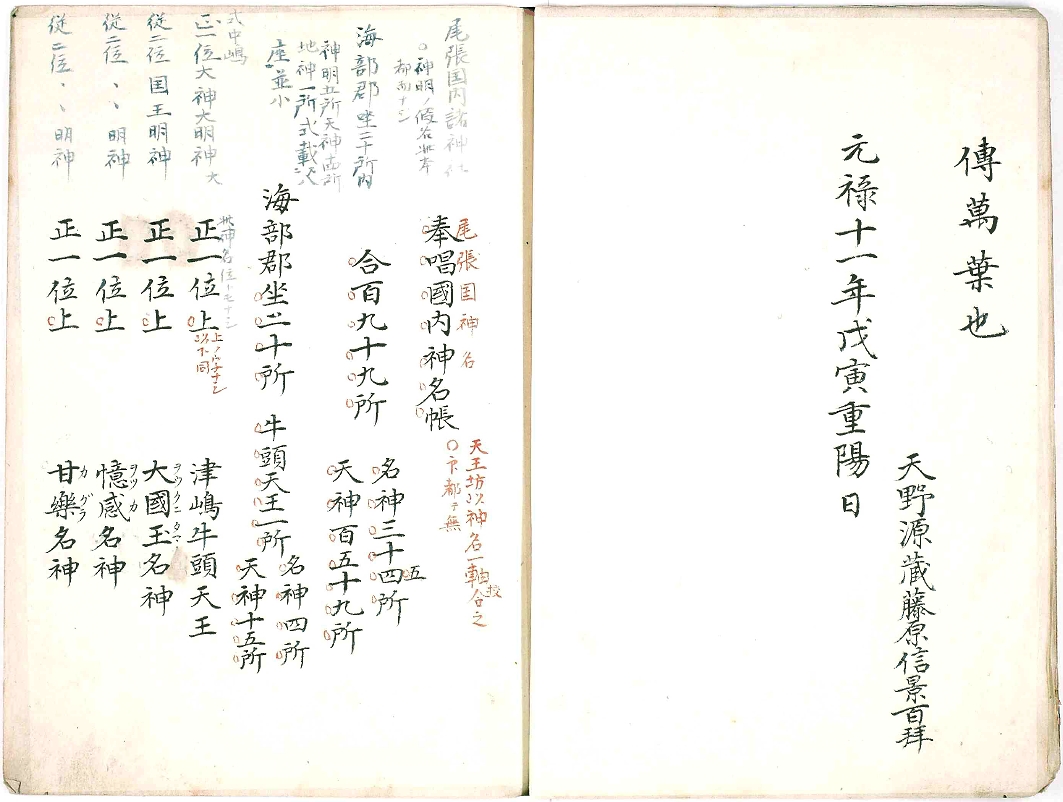 傳萬葉也
元禄十一年戊寅重陽日
天野源蔵藤原信景百拜
尾張国内諸神
〇神明ノ假名此本
都而ナシ
海部郡坐二十所内
神明五所天神
地神一所式載
座並小
式中嶋
正一位大神大明神大
従二位国王明神
従二位、、明神
従二位、、明神
尾張国神名
奉唱國内神名帳
天王坊以神名一軸校合之
〇下都テ無
合百九十九所
名神三十四所
五
天神百五十九所
海部郡坐二十所
牛頭天王一所
名神四所
天神十五所
此神名位トモナシ
正一位上
上ノ字ナシ
以下同
津嶋牛頭天王
正一位上
大國玉名神
ヲヽクニタマ
正一位上
憶感名神
ヲツカ
正一位上
甘樂名神
カグラ